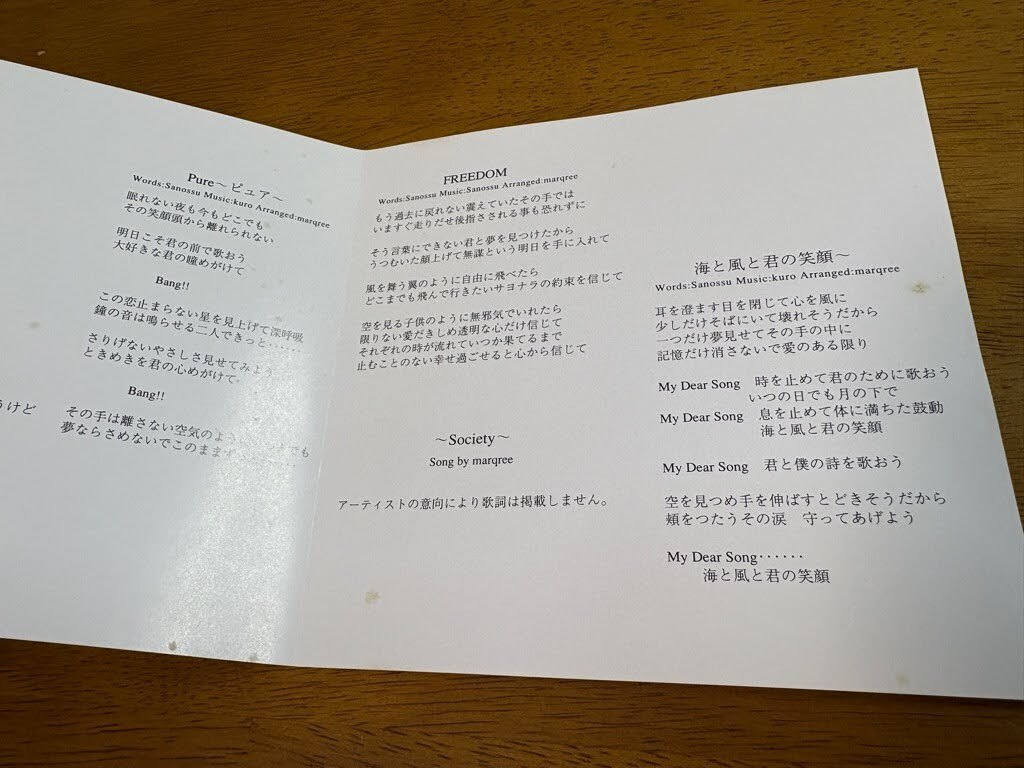 Pure～ピュア～
Words:Sanossu Music:kuro Arranged:marqree
眠れない夜も今もどこでも
その笑顔頭から離れられない
明日こそ君の前で歌おう
大好きな君の瞳めがけて
Bang!!
この恋止まらない星を見上げて深呼吸
鐘の音は鳴らせる二人できっと‥‥‥
さりげないやさしさ見せてみよう
ときめきを君の心めがけて
Bang!!
うけど
その手は離さない空気のよう
でも
夢ならさめないでこのまま
FREEDOM
Words:Sanossu Music:Sanossu Arranged:marqree
もう過去に戻れない震えていたその手では
いますぐ走りだせ後指さされる事も恐れずに
そう言葉にできない君と夢を見つけたから
うつむいた顔上げて無謀という明日を手に入れて
風を舞う翼のように自由に飛べたら
どこまでも飛んで行きたいサヨナラの約束を信じて
空を見る子供のように無邪気でいれたら
限りない愛だきしめ透明な心だけ信じて
それぞれの時が流れていつか果てるまで
止むことのない幸せ過ごせると心から信じて
～Society～
Song by marqree
アーティストの意向により歌詞は掲載しません。
海と風と君の笑顔～
Words:Sanossu Music:kuro Arranged:marqree
耳を澄ます目を閉じて心を風に
少しだけそばにいて壊れそうだから
一つだけ夢見せてその手の中に
記憶だけ消さないで愛のある限り
My Dear Song　時を止めて君のために歌おう
いつの日でも月の下で
My Dear Song　息を止めて体に満ちた鼓動
海と風と君の笑顔
My Dear Song　君と僕の詩を歌おう
空を見つめ手を伸ばすとどきそうだから
頬をつたうその涙　守ってあげよう
My Dear Song‥‥‥
海と風と君の笑顔